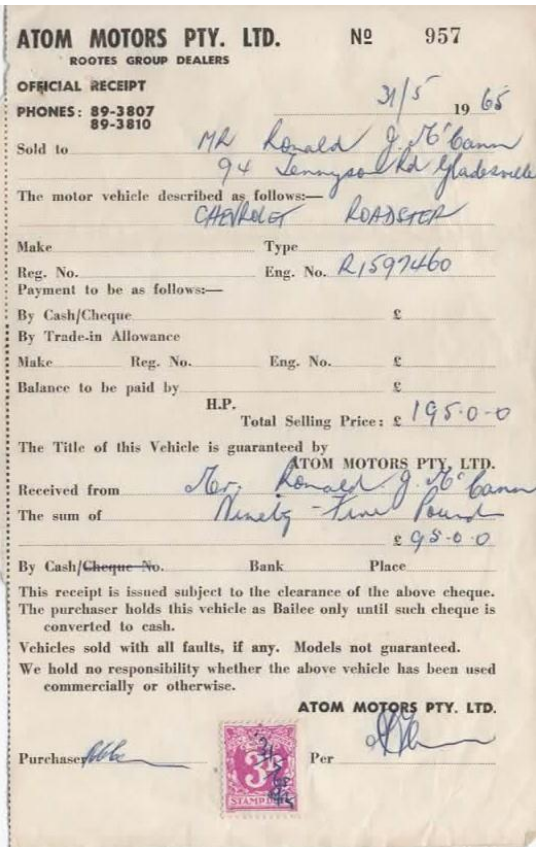 ATOM MOTORS PTY. LTD. Nº 957
ROOTES GROUP DEALERS
OFFICIAL RECEIPT
PHONES: 89-3807
89-3810
31/5 19 65
Sold to MR Ronald J. McCann
94 Tennyson Rd Gladesville
The motor vehicle described as follows:—
CHEVROLET ROADSTER
Make Type
Reg. No. Eng. No. R1597460
Payment to be as follows:—
By Cash/Cheque £
By Trade-in Allowance
Make Reg. No. Eng. No. £
Balance to be paid by £
H.P.
Total Selling Price: £ 195-0-0
The Title of this Vehicle is guaranteed by
ATOM MOTORS PTY, LTD.
Received from Mr. Ronald J. McCann
The sum of Ninety-Five Pound
£ 95-0-0
By Cash/Cheque No. Bank Place
This receipt is issued subject to the clearance of the above cheque.
The purchaser holds this vehicle as Bailee only until such cheque is
converted to cash.
Vehicles sold with all faults, if any. Models not guaranteed.
We hold no responsibility whether the above vehicle has been used
commercially or otherwise.
ATOM MOTORS PTY. LTD.
Purchaser Per
3D
STAMP DUTY